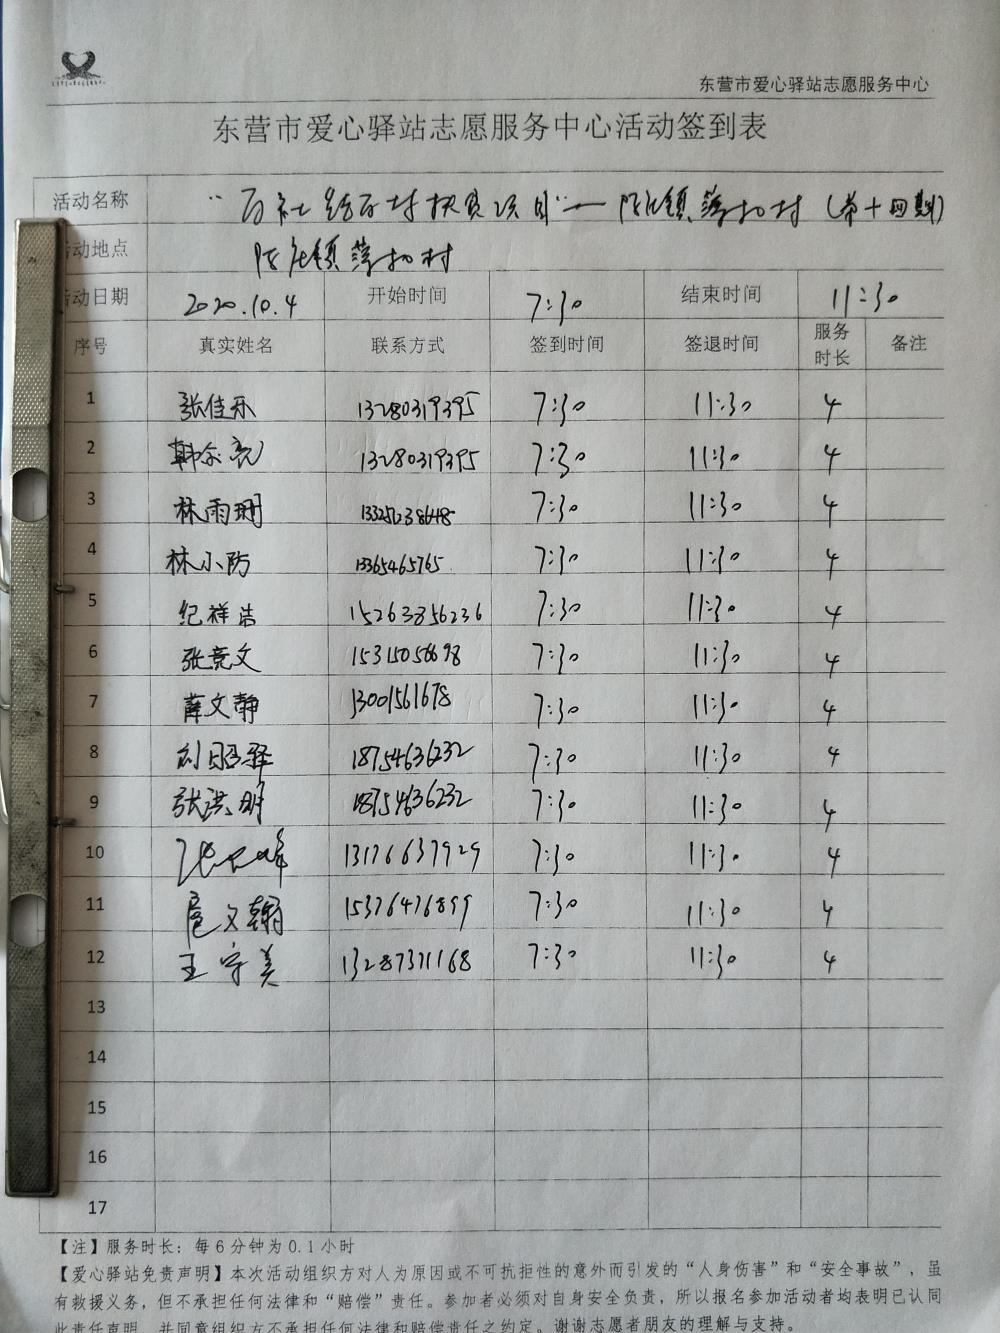 东营市爱心驿站志愿服务中心
东营市爱心驿站志愿服务中心活动签到表
活动名称 “百社结百村扶贫项目”— 陈庄镇薄扣村 (第十四期)
活动地点 陈庄镇薄扣村
活动日期 2020.10.4 开始时间 7:30 结束时间 11:30
序号 真实姓名 联系方式 签到时间 签退时间 服务时长 备注
1 张佳乐 13280319395 7:30 11:30 4
2 韩余亮 13280319395 7:30 11:30 4
3 林雨珊 7:30 11:30 4
4 林小防 13365465765 7:30 11:30 4
5 纪祥浩 15263856236 7:30 11:30 4
6 张竞文 15315056698 7:30 11:30 4
7 薛文静 13001561678 7:30 11:30 4
8 刘昭驿 18754636232 7:30 11:30 4
9 张洪明 18754636232 7:30 11:30 4
10 13176637929 7:30 11:30 4
11 扈文翰 15376476899 7:30 11:30 4
12 王守美 13287371168 7:30 11:30 4
13
14
15
16
17
【注】服务时长：每6分钟为0.1小时
【爱心驿站免责声明】本次活动组织方对人为原因或不可抗拒性的意外而引发的“人身伤害”和“安全事故”，虽
有救援义务，但不承担任何法律和“赔偿”责任。参加者必须对自身安全负责，所以报名参加活动者均表明已认同
此责任声明，并同意组织方不承担任何法律和赔偿责任之约定。谢谢志愿者朋友的理解与支持。